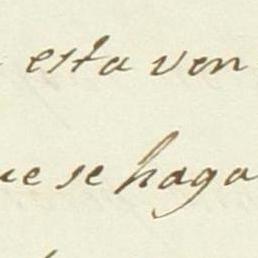 esta ven
ue se haga